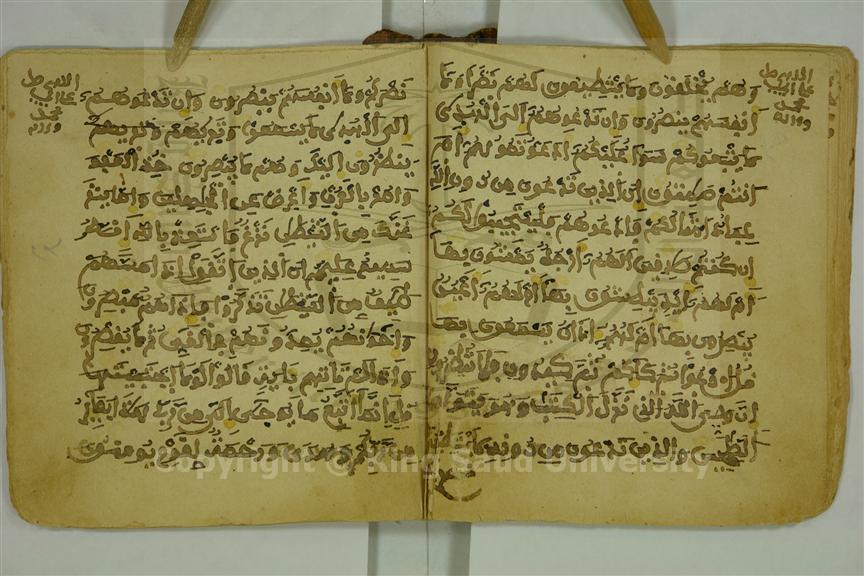 وهم يخلقون ولا يستطيعون لهم نصرا ولا
أنفسهم ينصرون وإن تدعوهم إلى الهدى
لا يتبعوكم سواء عليكم أدعوتموهم أم
أنتم صمتون إن الذين تدعون من دون الله
عباد أمثالكم فادعوهم فليستجيبوا لكم
إن كنتم صدقين ألهم أرجل يمشون بها
أم لهم أيد يبطشون بها أم لهم أعين
يبصرون بها أم لهم ءاذان يسمعون بها
قل ادعوا شركاءكم ثم كيدون فلا تنظرون
إن وليي الله الذي نزل الكتب وهو يتولى
الصلحين والذين تدعون من دونه لا يستطيعون
نصركم ولا أنفسهم ينصرون وإن تدعوهم
إلى الهدى لا يسمعوا وتريهم
ينظرون إليك وهم لا يبصرون خذ العفو
وامر بالعرف وأعرض عن الجهلين وإما ينز
غنك من الشيطن نزغ فاستعذ بالله إنه
سميع عليم إن الذين اتقوا إذا مسهم
طيف من الشيطن تذكروا فإذا هم مبصرون
وإخوانهم يمدونهم في الغي ثم لا يقصرون
وإذا لم تاتهم باية قالوا لولا اجتبيتها
قل إنما أتبع ما يوحى إلي من ربي هذا بصائر
من ربكم وهدى ورحمة لقوم يومنون
Copyright © King Saud University